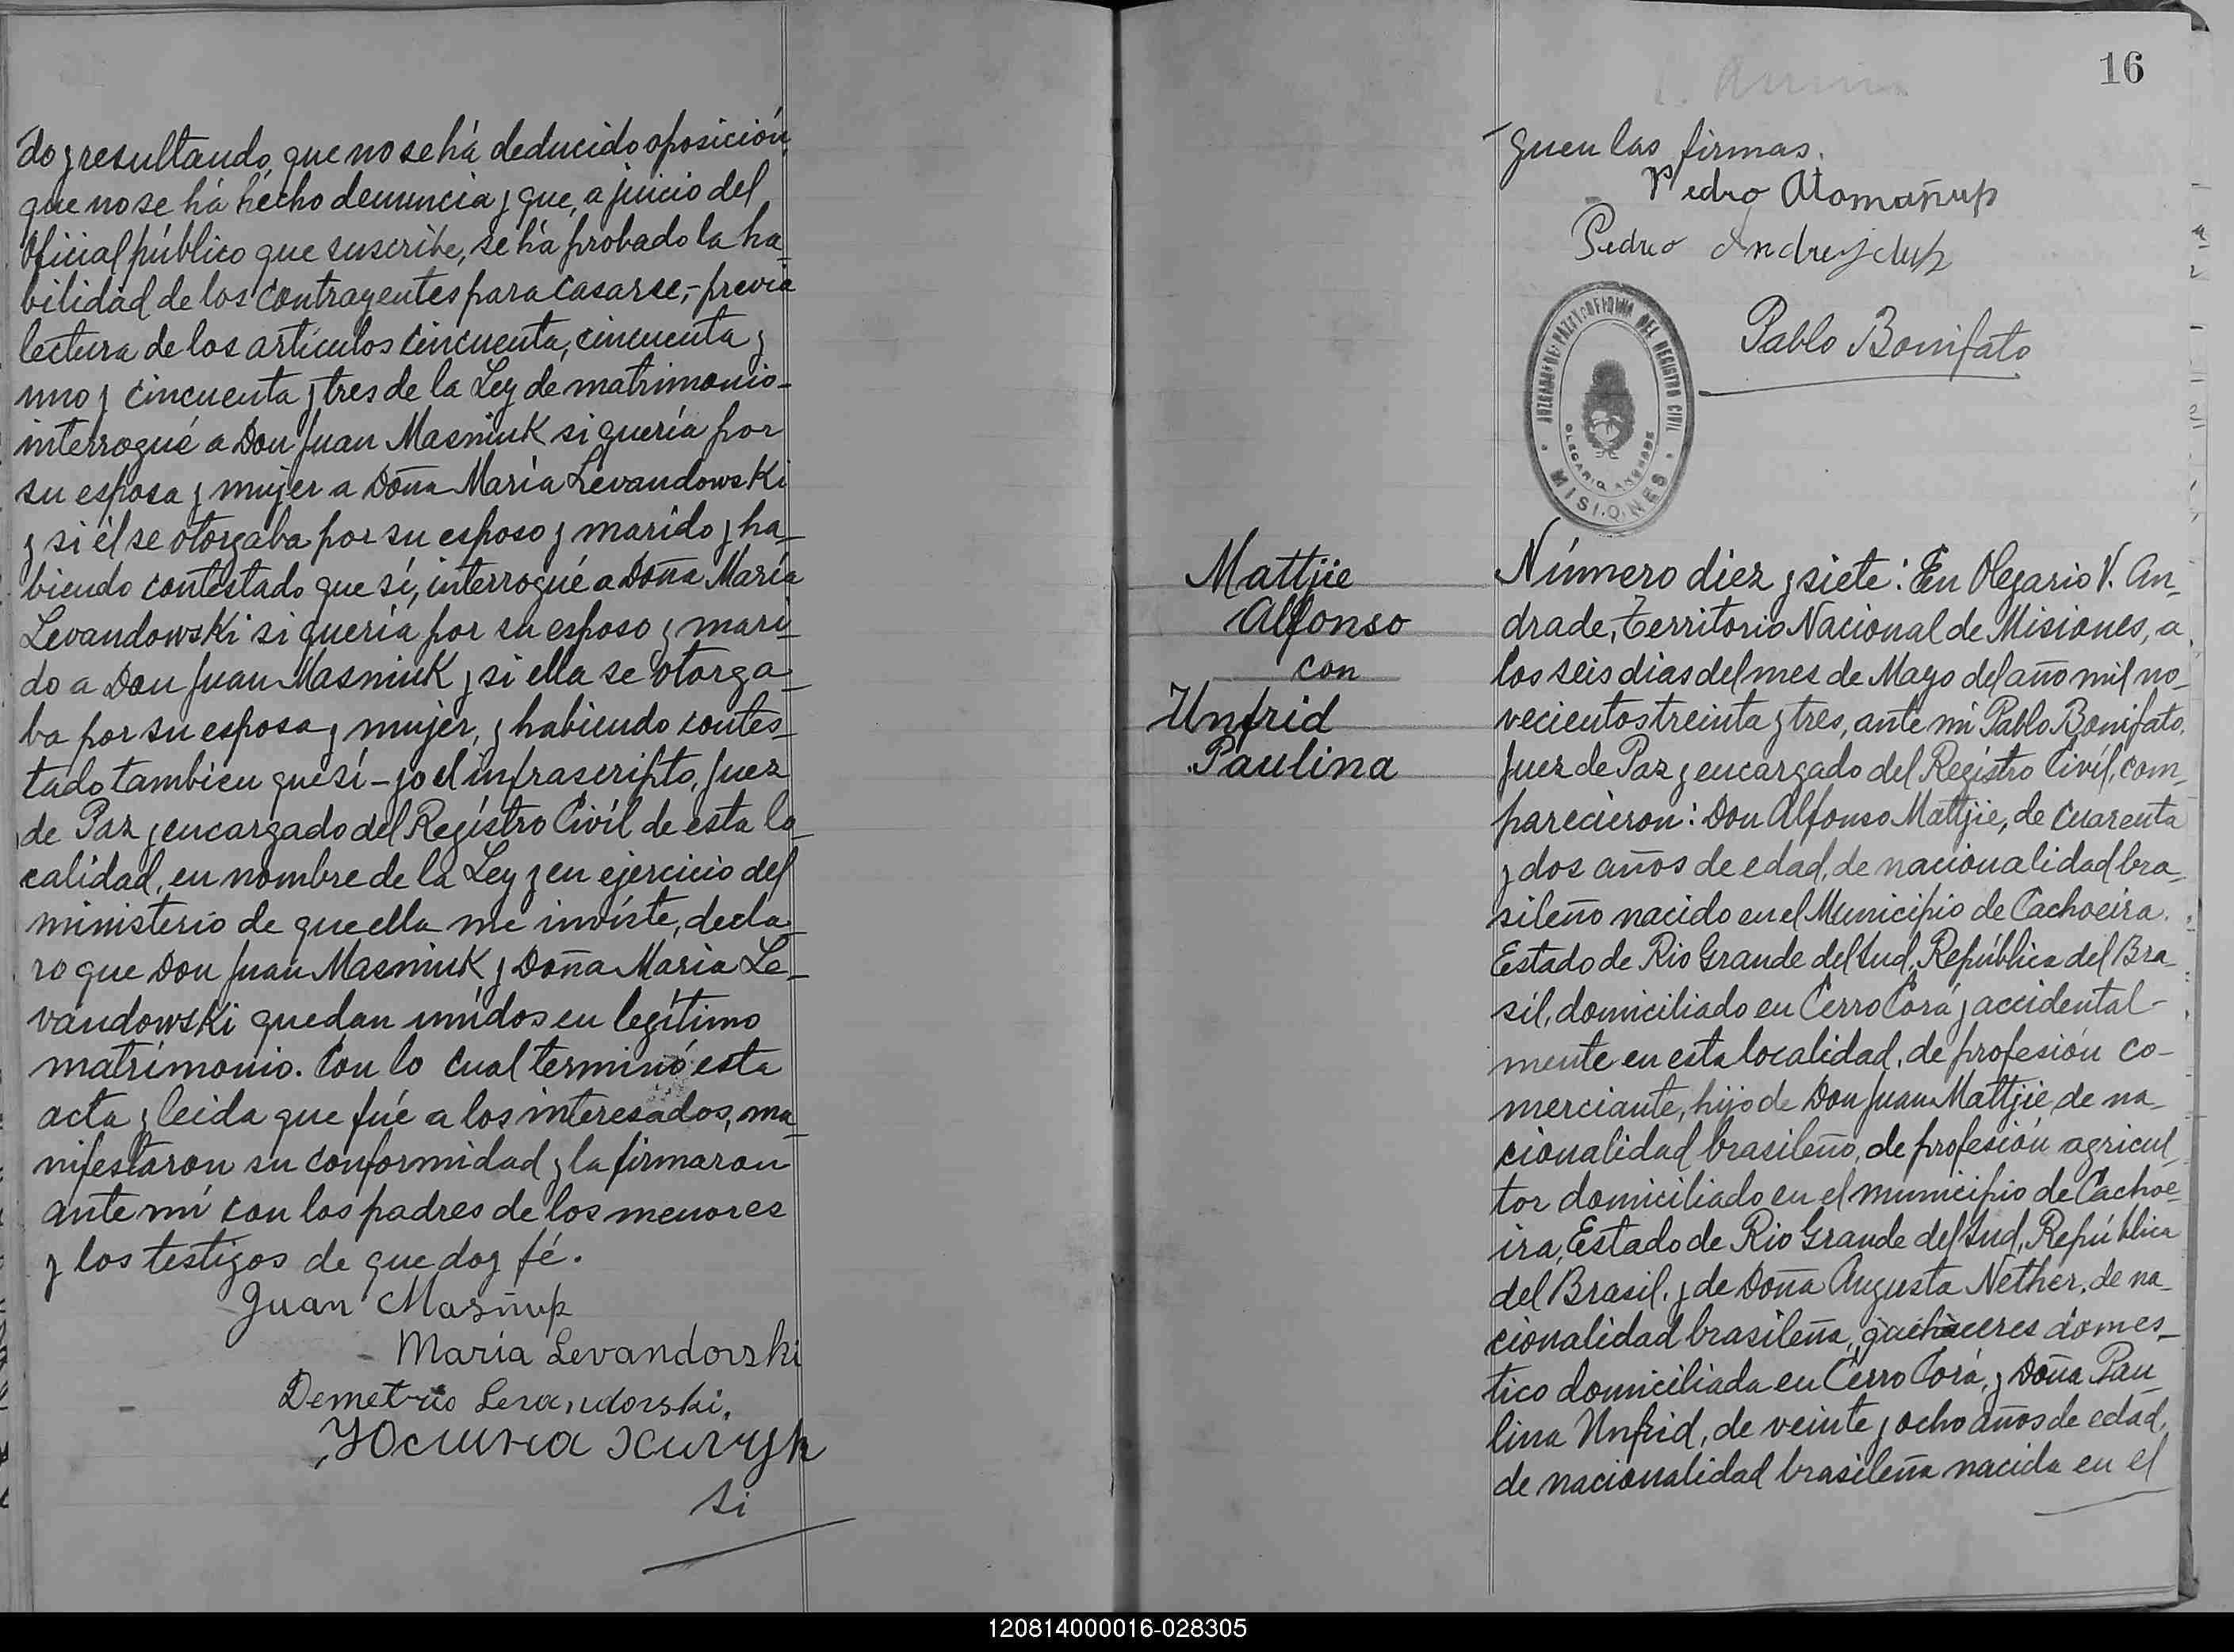 do y resultando, que no se há deducido oposición,
que no se há hecho denuncia y que, a juicio del
Oficial público que suscribe, se há probado la ha-
bilidad de los contrayentes para casarse,- previa
lectura de los artículos cincuenta, cincuenta y
uno y cincuenta y tres de la Ley de matrimonio-
interrogué a Don Juan Masniuk si quería por
su esposa y mujer a Doña María Levandowski
y si él se otorgaba por su esposo y marido y ha-
biendo contestado que sí, interrogué a Doña María
Levandowski si quería por su esposo y mari-
do a Don Juan Masniuk y si ella se otorga-
ba por su esposa y mujer, y habiendo contes-
tado tambien que sí - yo el infrascripto, Juez
de Paz y encargado del Registro Civíl de esta lo-
calidad, en nombre de la Ley y en ejercicio del
ministerio de que ella me inviste, decla-
ro que Don Juan Masniuk y Doña María Le-
vandowski quedan unídos en legítimo
matrimonio. Con lo cual terminó esta
acta y leida que fué a los interesados, ma-
nifestaron su conformidad y la firmaron
ante mí con los padres de los menores
y los testigos de que doy fé.
Juan Masñuk
María Levandovski
Demetrio Levandovski.
Si
16
guen las firmas.
Pedro Atomañup
Pedro
Pablo Bonifato
JUZGADO DE PAZ Y OFICINA DEL REGISTRO CIVIL
OLEGARIO ANDRADE
MISIONES
Mattjie
Alfonso
con
Unfrid
Paulina
Número diez y siete: En Olegario V. An-
drade, Territorio Nacional de Misiones, a
los seis dias del mes de Mayo del año mil no-
vecientos treinta y tres, ante mí Pablo Bonifato,
Juez de Paz y encargado del Registro Civíl, com-
parecieron: Don Alfonso Mattjie, de cuarenta
y dos años de edad, de nacionalidad bra-
sileño nacido en el Municipio de Cachoeira.
Estado de Rio Grande del Sud, República del Bra-
sil, domiciliado en Cerro Corá y accidental-
mente en esta localidad, de profesión co-
merciante, hijo de Don Juan Mattjie, de na-
cionalidad brasileño, de profesión agricul-
tor domiciliado en el municipio de Cachoe-
ira, Estado de Rio Grande del Sud, República
del Brasil, y de Doña Augusta Nether, de na-
cionalidad brasileña, quehaceres domes-
tico domiciliada en Cerro Corá, y Doña Pau-
lina Unfrid, de veinte y ocho años de edad,
de nacionalidad brasileña nacida en el
120814000016-028305